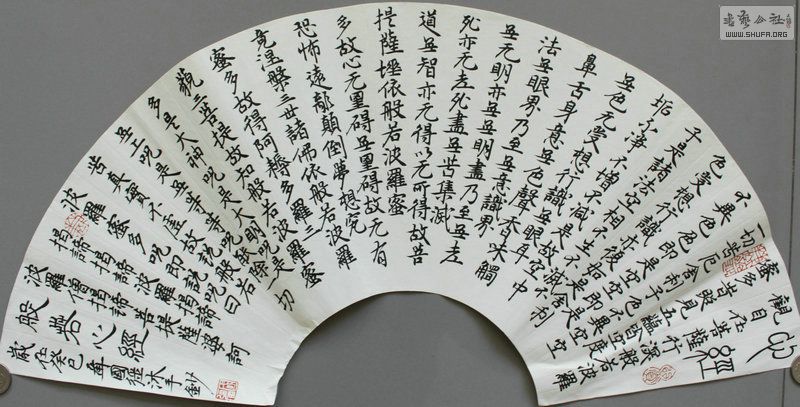 心經
觀自在菩薩行深般若波羅
蜜多時照見五蘊皆空度
一切苦厄舍利子色不異空空
不異色色即是空空即是
色受想行識亦復如是舍利
子是諸法空相不生不滅不
垢不淨不增不減是故空中
無色无受想行識無眼耳
鼻舌身意無色聲香味觸
法無眼界乃至無意識界
無无明亦無無明盡乃至無老
死亦无老死盡無苦集滅
道無智亦无得以无所得故菩
提薩埵依般若波羅蜜
多故心无罣礙無罣礙故无有
恐怖遠離顛倒夢想究
竟涅槃三世諸佛依般若波羅
蜜多故得阿耨多羅三
藐三菩提故知般若波羅蜜
多是大神呪是大明呪是
無上呪是無等等呪能除一切
苦真實不虛故說般若
波羅蜜多呪即說呪曰
揭諦揭諦波羅揭諦
波羅僧揭諦菩提薩婆訶
般若心經
歲在癸巳年國經沐手鈔
WWW.SHUFA.ORG